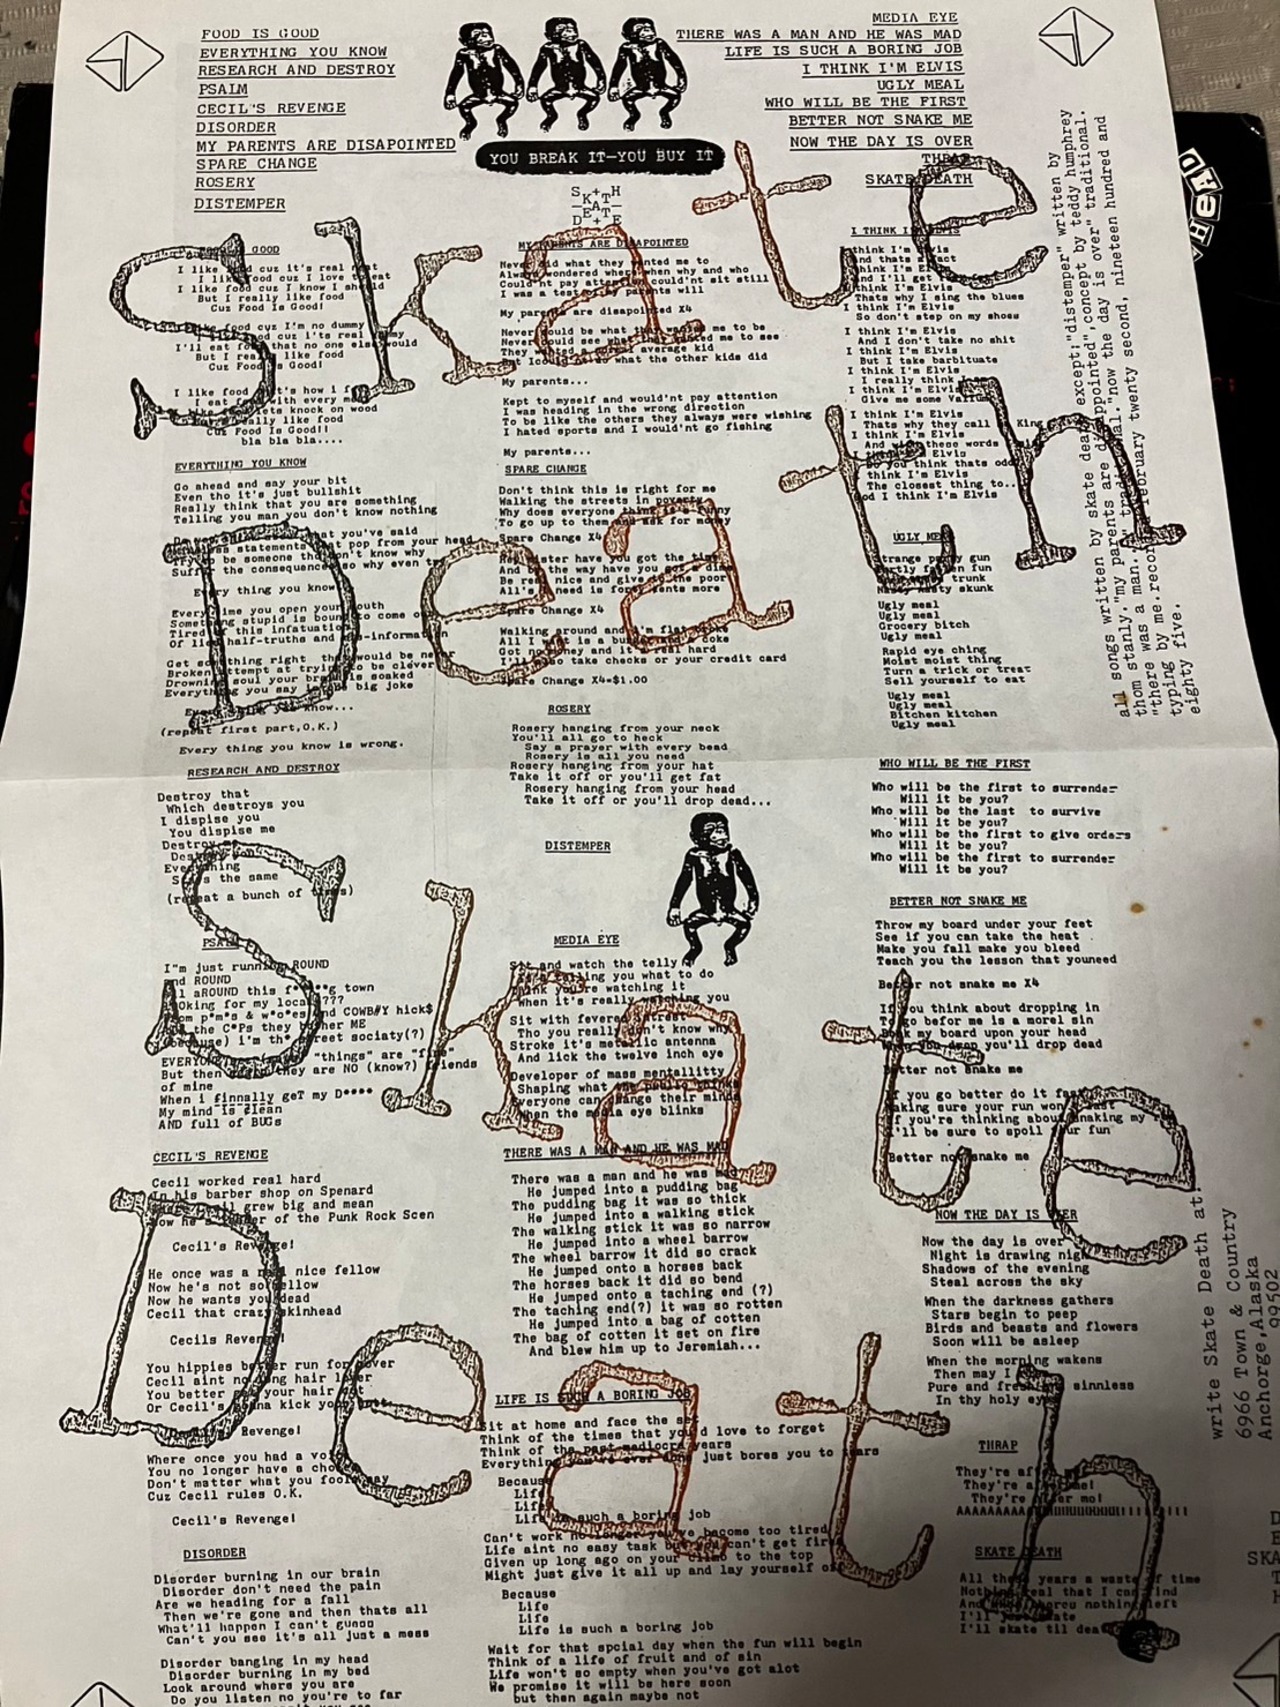 FOOD IS GOOD
EVERYTHING YOU KNOW
RESEARCH AND DESTROY
PSALM
CECIL'S REVENGE
DISORDER
MY PARENTS ARE DISAPOINTED
SPARE CHANGE
ROSERY
DISTEMPER
YOU BREAK IT—YOU BUY IT
MEDIA EYE
THERE WAS A MAN AND HE WAS MAD
LIFE IS SUCH A BORING JOB
I THINK I'M ELVIS
UGLY MEAL
WHO WILL BE THE FIRST
BETTER NOT SNAKE ME
NOW THE DAY IS OVER
THRAP
SKATE DEATH
Skate
Death
Skate
Death
GOOD
I like cuz it's real
I like food cuz I love
I like food cuz I know I
But I really like food
Cuz Food Is Good!
food cuz I'm no dummy
food cuz i'ts real
I'll eat that no one else would
But I really like food
Cuz Food Is Good!
I like food how i
I eat with every
lets knock on wood
really like food
Cuz Food Is Good!!
bla bla bla....
EVERYTHING YOU KNOW
Go ahead and say your bit
Even tho it's just bullshit
Really think that you are something
Telling you man you don't know nothing
you've said
statements that pop from your head
be someone know why
the consequences so why even
Every thing you know
Every time you open your mouth
Something stupid is bound to come
Tired of this infatuation
half-truths and
Get something right would be
Broken attempt at trying to be clever
Drowning soul your is soaked
Everything you say big joke
know...
(repeat first part,O.K.)
Every thing you know is wrong.
RESEARCH AND DESTROY
Destroy that
Which destroys you
I dispise you
You dispise me
Destroy
Destroy
Everything
the same
(repeat a bunch of times)
PSALM
I"m just running ROUND
and ROUND
aROUND this f****g town
for my ???
p*m*s & w*o*es and COWB#Y hick$
the C*Ps they bother ME
(because) i'm street sociaty(?)
"things" are
But then they are NO (know?) friends
of mine
When i finnally geT my D****
My mind is clean
AND full of BUGs
CECIL'S REVENGE
Cecil worked real hard
In his barber shop on Spenard
grew big and mean
of the Punk Rock Scen
Cecil's Revenge!
He once was a nice fellow
Now he's not so mellow
Now he wants you dead
Cecil that crazy skinhead
Cecils Revenge!
You hippies better run for cover
Cecil aint no long hair lover
You better your hair cut
Or Cecil's gonna kick your
Revenge!
Where once you had a
You no longer have a
Don't matter what you fools say
Cuz Cecil rules O.K.
Cecil's Revenge!
DISORDER
Disorder burning in our brain
Disorder don't need the pain
Are we heading for a fall
Then we're gone and then thats all
What'll happen I can't guess
Can't you see it's all just a mess
Disorder banging in my head
Disorder burning in my bed
Look around where you are
Do you listen no you're to far
MY PARENTS ARE DISAPOINTED
Never did what they wanted me to
Always wondered where when why and who
Could'nt pay attention could'nt sit still
I was a test of my parents will
My parents are disapointed X4
Never could be what they wanted me to be
Never could see what they wanted me to see
They wanted a average kid
what the other kids did
My parents...
Kept to myself and would'nt pay attention
I was heading in the wrong direction
To be like the others they always were wishing
I hated sports and I would'nt go fishing
My parents...
SPARE CHANGE
Don't think this is right for me
Walking the streets in poverty
Why does everyone think is funny
To go up to them and ask for money
Spare Change X4
Hey mister have you got the time
And by the way have you got a dime
Be real nice and give to the poor
All's I need is forty cents more
Spare Change X4
Walking around and I'm flat broke
All I want is a and a coke
Got no money and it's real hard
I'll also take checks or your credit card
Spare Change X4=$1.00
ROSERY
Rosery hanging from your neck
You'll all go to heck
Say a prayer with every bead
Rosery is all you need
Rosery hanging from your hat
Take it off or you'll get fat
Rosery hanging from your head
Take it off or you'll drop dead...
DISTEMPER
MEDIA EYE
Sit and watch the telly
telling you what to do
Think you're watching it
When it's really watching you
Sit with fevered
Tho you really don't know why
Stroke it's metallic antenna
And lick the twelve inch eye
Developer of mass mentallitty
Shaping what the public thinks
Everyone can change their minds
When the media eye blinks
THERE WAS A MAN AND HE WAS MAD
There was a man and he was mad
He jumped into a pudding bag
The pudding bag it was so thick
He jumped into a walking stick
The walking stick it was so narrow
He jumped into a wheel barrow
The wheel barrow it did so crack
He jumped onto a horses back
The horses back it did so bend
He jumped onto a taching end (?)
The taching end(?) it was so rotten
He jumped into a bag of cotten
The bag of cotten it set on fire
And blew him up to Jeremiah...
LIFE IS SUCH A BORING JOB
Sit at home and face the set
Think of the times that you'd love to forget
Think of the past mediocre years
Everything you've ever done just bores you to tears
Because
Life
Life
Life is such a boring job
Can't work no longer you've become too tired
Life aint no easy task but you can't get fired
Given up long ago on your climb to the top
Might just give it all up and lay yourself off
Because
Life
Life
Life is such a boring job
Wait for that spcial day when the fun will begin
Think of a life of fruit and of sin
Life won't so empty when you've got alot
We promise it will be here soon
but then again maybe not
I THINK I'M ELVIS
I think I'm Elvis
And thats a fact
I think I'm Elvis
And I'll get
I think I'm Elvis
Thats why I sing the blues
I think I'm Elvis
So don't step on my shoes
I think I'm Elvis
And I don't take no shit
I think I'm Elvis
But I take barbituate
I think I'm Elvis
I really think
I think I'm Elvis
Give me some Valium
I think I'm Elvis
Thats why they call King
I think I'm Elvis
And these words
Elvis
Do you think thats odd
I think I'm Elvis
The closest thing to..
God I think I'm Elvis
UGLY MEAL
Strange gun
fun
trunk
skunk
Ugly meal
Ugly meal
Grocery bitch
Ugly meal
Rapid eye ching
Moist moist thing
Turn a trick or treat
Sell yourself to eat
Ugly meal
Ugly meal
Bitchen kitchen
Ugly meal
WHO WILL BE THE FIRST
Who will be the first to surrender
Will it be you?
Who will be the last to survive
Will it be you?
Who will be the first to give orders
Will it be you?
Who will be the first to surrender
Will it be you?
BETTER NOT SNAKE ME
Throw my board under your feet
See if you can take the heat
Make you fall make you bleed
Teach you the lesson that youneed
Better not snake me X4
If you think about dropping in
To go befor me is a morel sin
my board upon your head
When you drop you'll drop dead
Better not snake me
If you go better do it fast
Making sure your run won't last
If you're thinking about snaking my
I'll be sure to spoil your fun
Better not snake me
NOW THE DAY IS OVER
Now the day is over
Night is drawing nigh
Shadows of the evening
Steal across the sky
When the darkness gathers
Stars begin to peep
Birds and beasts and flowers
Soon will be asleep
When the morning wakens
Then may I
Pure and fresh sinnless
In thy holy eyes
THRAP
They're after
They're after me!
They're after mo!
SKATE DEATH
All these years a waste of time
Nothing real that I can find
And theres nothing left
I'll skate
I'll skate til death
all songs written by skate death except;"distemper" written by
thom stanly."my parents are disappointed",concept by teddy humphrey
"there was a man. traditional."now the day is over" traditional.
typing by me.recorded february twenty second, nineteen hundred and
eighty five.
write Skate Death at:
6966 Town & Country
Anchorge,Alaska
99502